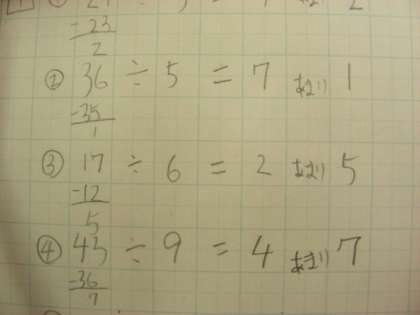 -23
2
② 36 ÷ 5 = 7 あまり 1
-35
1
③ 17 ÷ 6 = 2 あまり 5
-12
5
④ 43 ÷ 9 = 4 あまり 7
-36
7